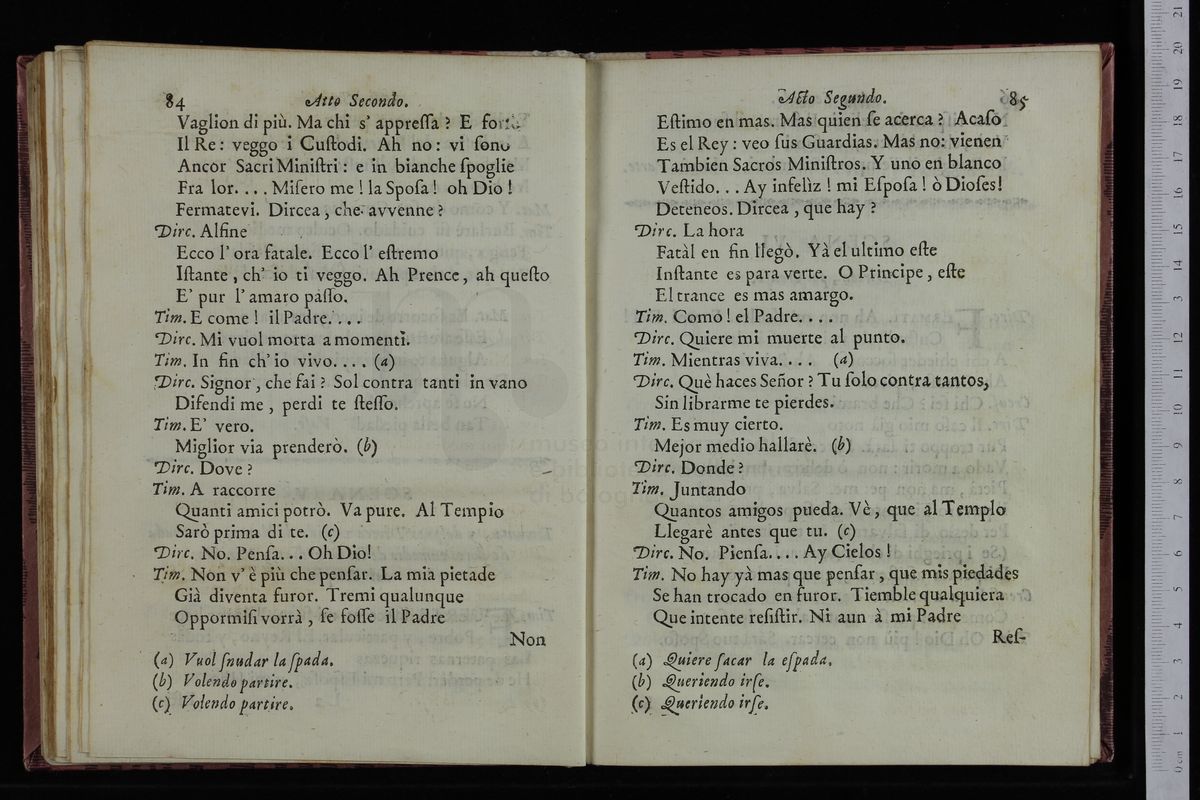 84 Atto Secondo.
Vaglion di più. Ma chi s' appreſſa ? E
Il Re : veggo i Cuſtodi. Ah no : vi ſono
Ancor Sacri Miniſtri : e in bianche ſpoglie
Fra lor. . . . Miſero me ! la Spoſa ! oh Dio !
Fermatevi. Dircea , che avvenne ?
Dirc. Alfine
Ecco l' ora fatale. Ecco l' eſtremo
Iſtante , ch' io ti veggo. Ah Prence , ah queſto
E' pur l' amaro paſſo.
Tim. E come ! il Padre. . . .
Dirc. Mi vuol morta a momenti.
Tim. In fin ch' io vivo. . . . (a)
Dirc. Signor , che fai ? Sol contra tanti in vano
Difendi me , perdi te ſteſſo.
Tim. E' vero.
Miglior via prenderò. (b)
Dirc. Dove ?
Tim. A raccorre
Quanti amici potrò. Va pure. Al Tempio
Sarò prima di te. (c)
Dirc. No. Penſa. . . Oh Dio!
Tim. Non v' è più che penſar. La mia pietade
Già diventa furor. Tremi qualunque
Oppormiſi vorrà , ſe foſſe il Padre
Non
(a) Vuol ſnudar la ſpada.
(b) Volendo partire.
(c) Volendo partire.
Acto Segundo. 85
Eſtimo en mas. Mas quien ſe acerca ? Acaſo
Es el Rey : veo ſus Guardias. Mas no: vienen
Tambien Sacros Miniſtros. Y uno en blanco
Veſtido. . . Ay infeliz ! mi Eſpoſa ! ò Dioſes!
Deteneos. Dircea , que hay ?
Dirc. La hora
Fatàl en fin llegò. Yà el ultimo eſte
Inſtante es para verte. O Principe , eſte
El trance es mas amargo.
Tim. Como ! el Padre. . . .
Dirc. Quiere mi muerte al punto.
Tim. Mientras viva. . . . (a)
Dirc. Què haces Señor ? Tu ſolo contra tantos,
Sin librarme te pierdes.
Tim. Es muy cierto.
Mejor medio hallarè. (b)
Dirc. Donde ?
Tim. Juntando
Quantos amigos pueda. Vè , que al Templo
Llegarè antes que tu. (c)
Dirc. No. Pienſa. . . . Ay Cielos !
Tim. No hay yà mas que penſar , que mis piedades
Se han trocado en furor. Tiemble qualquiera
Que intente reſiſtir. Ni aun à mi Padre
Reſ-
(a) Quiere ſacar la eſpada.
(b) Queriendo irſe.
(c) Queriendo irſe.